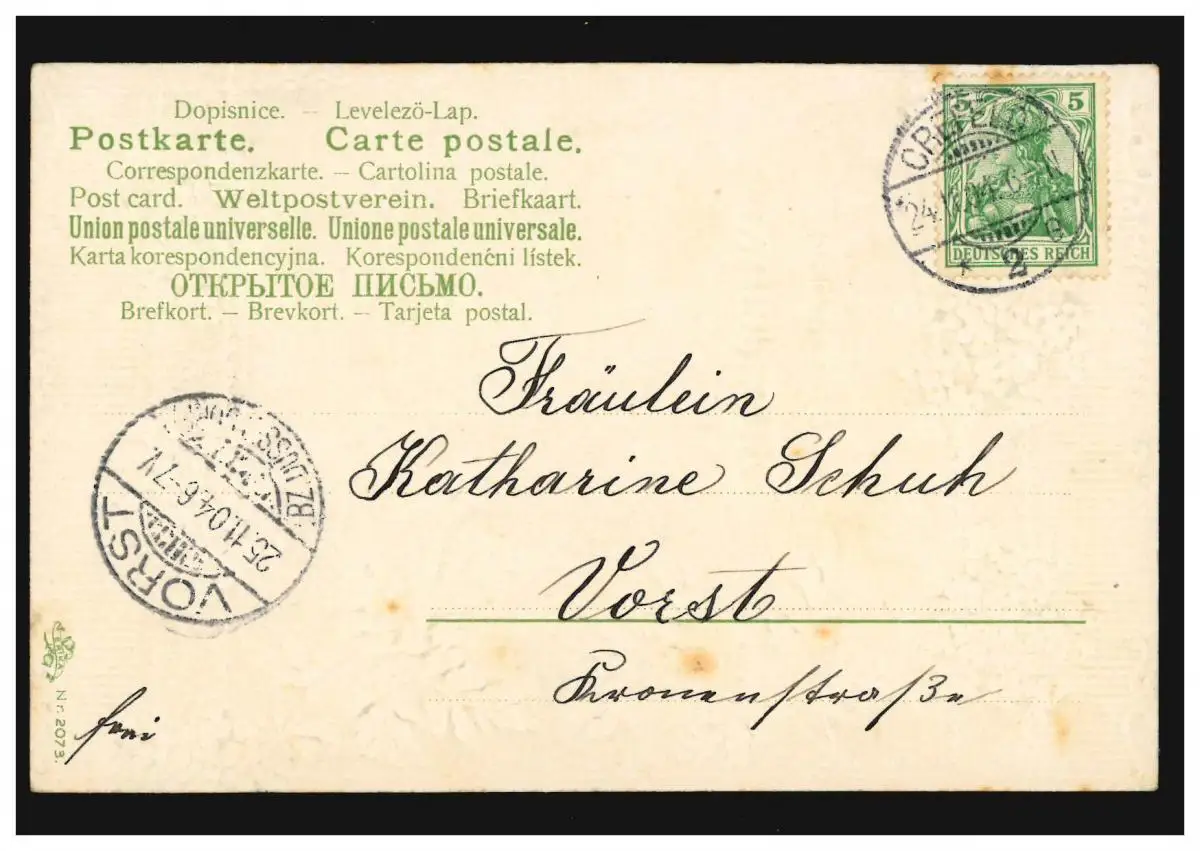 Dopisnice. – Levelezö-Lap.
Postkarte. Carte postale.
Correspondenzkarte. – Cartolina postale.
Post card. Weltpostverein. Briefkaart.
Union postale universelle. Unione postale universale.
Karta korespondencyjna. Korespondenčni lístek.
ОТКРЫТОЕ ПИСЬМО.
Brefkort. – Brevkort. – Tarjeta postal.
5 5
DEUTSCHES REICH
CREFELD
* 2 c
Fräulein
Katharine Schuh
Vorst
Kronenstraße
VORST
25.11.04.6-7V.
BZ DÜSSELDORF
ERIKA
Nr. 2073.
frei